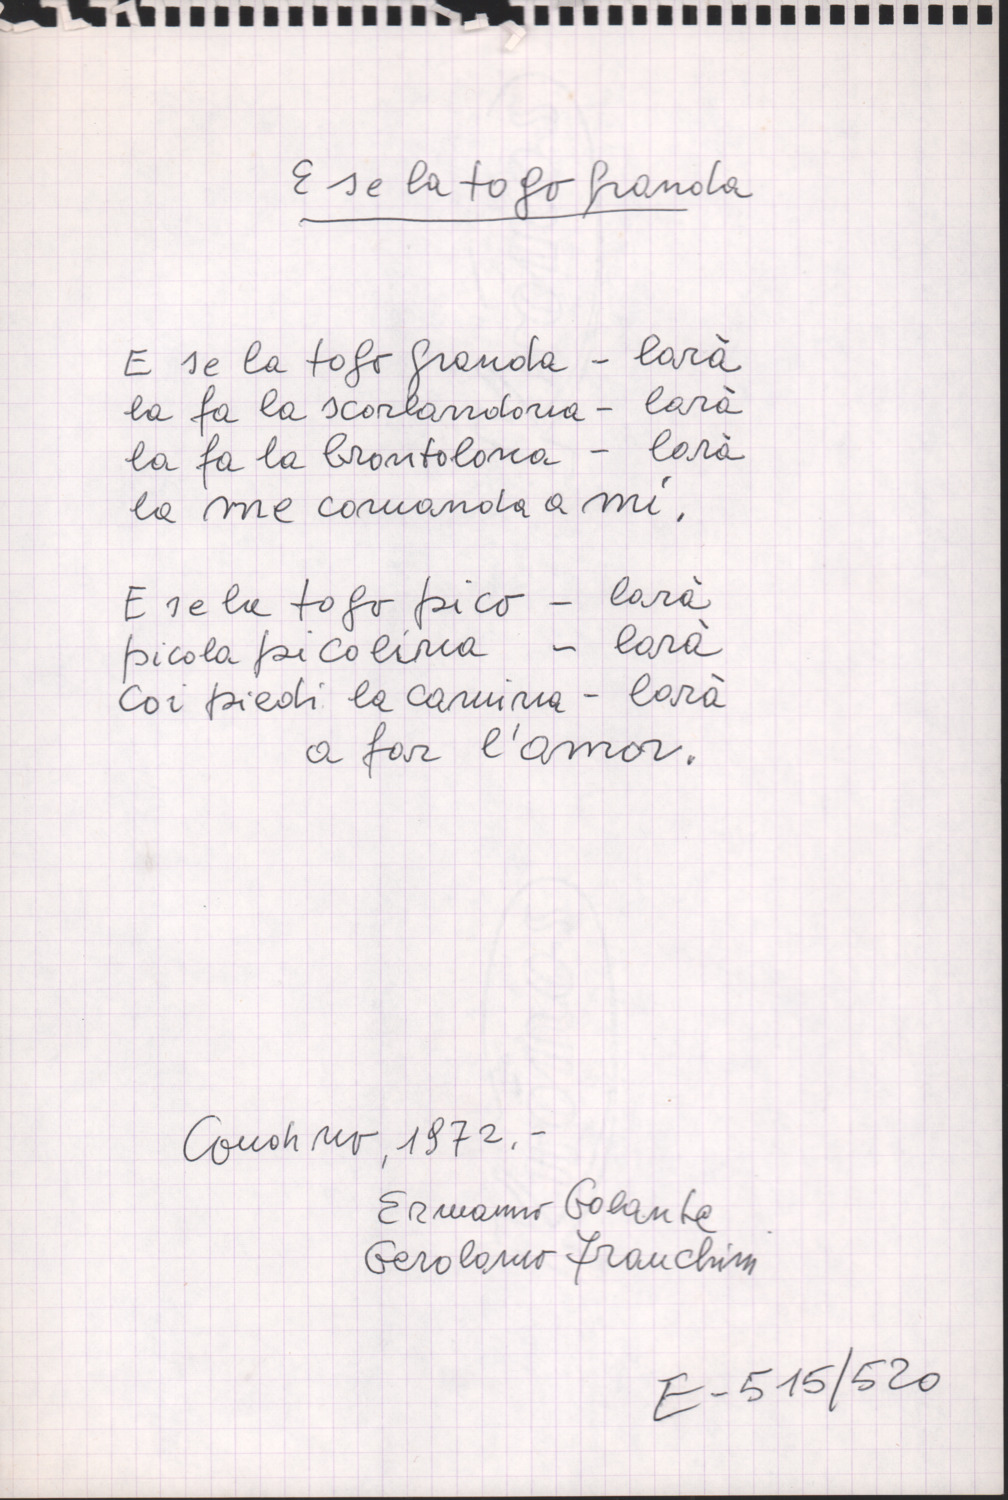 E se la togo granda
E se la togo granda - larà
la fa la scorlandona - larà
la fa la brontolona - larà
la me comanda a mi.
E se la togo pico - larà
picola picolina - larà
Coi piedi la camina - larà
a far l'amor.
Condino, 1972.-
Ermanno Galante
Gerolamo Franchini
E-515/520